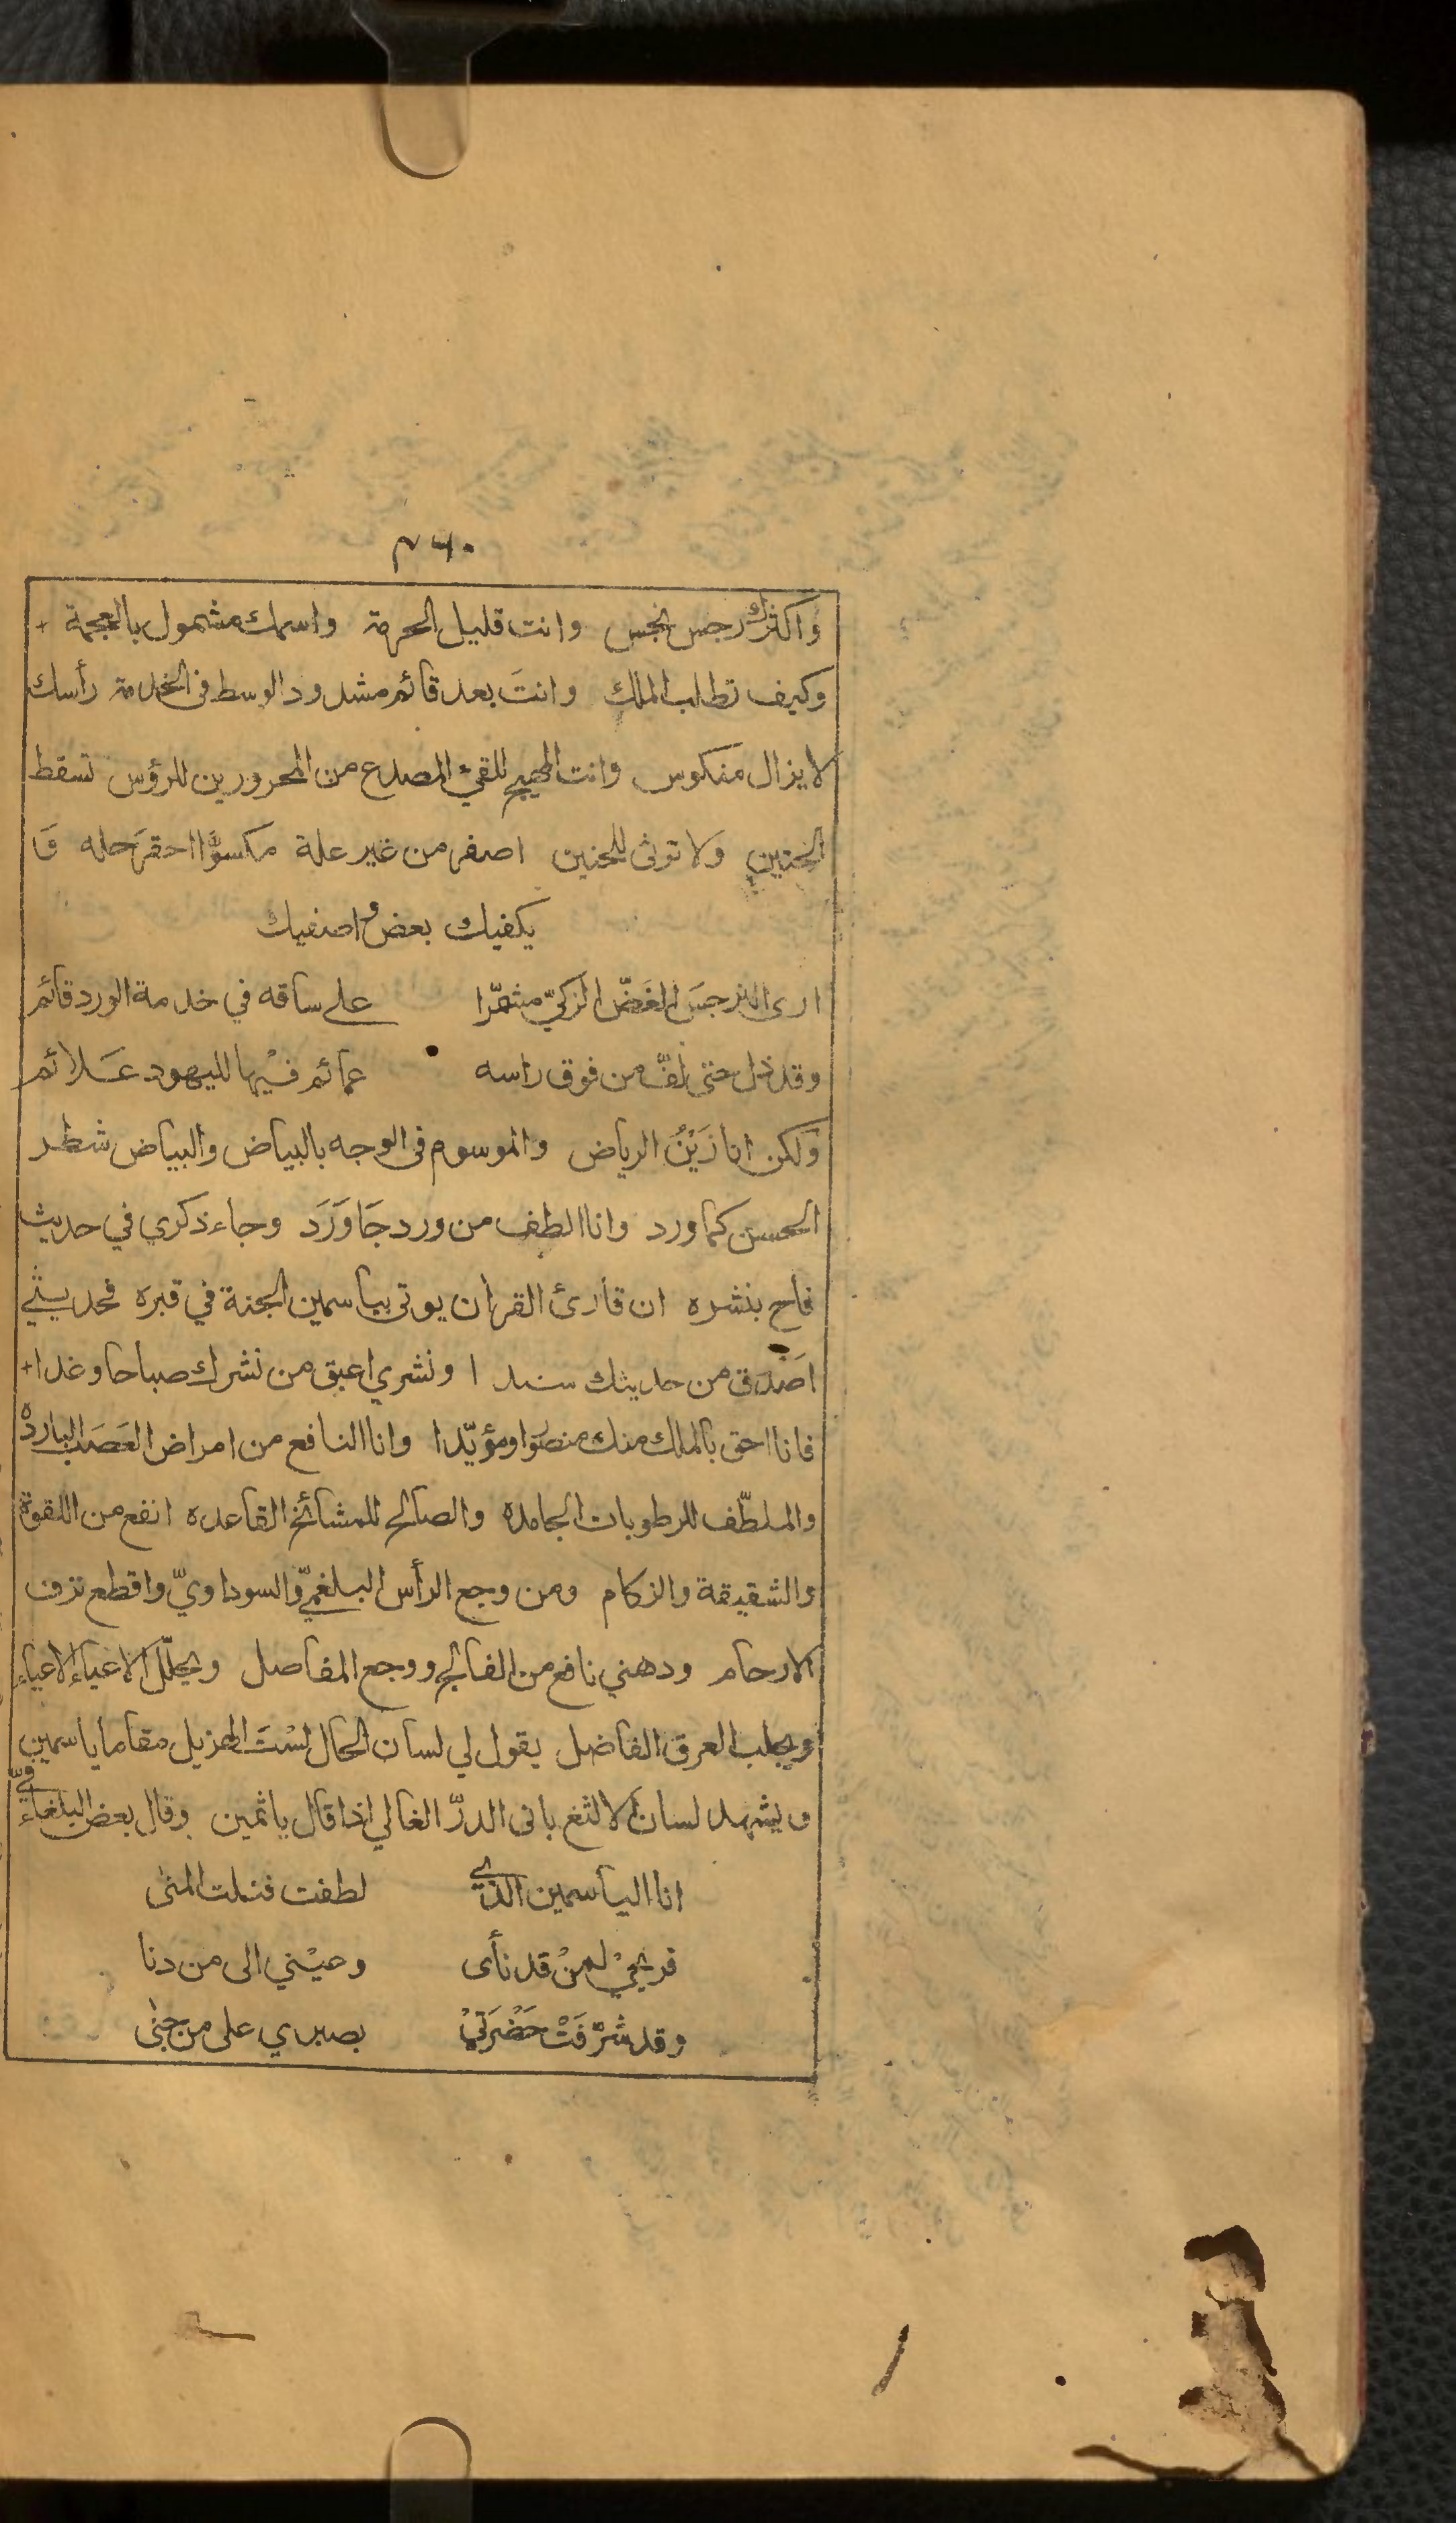 ٢٦٠
واكثرك رجس نجس وانت قليل الحرمة واسمك مشمول بالعجمة +
وكيف تطلب الملك وانتَ بعد قائم مشدود الوسط في الخدمة رأسك
لا يزال منكوس وانت المهيج للقئ المصدع من المحرورين للرؤس تسقط
الجنين ولا توثى للحنين اصفر من غير علة مكسوًّا احقرَ حله وَ
يكفيك بعض واصفيك
ارى النرجسَ الغَضّ الزكيّ مشمّرا على ساقه في خدمة الورد قائم
وقد ذل حتى لفّ من فوق راسه عمائم فيْها لليهود عَلائم
ولكن انا زَيْنُ الرياض والموسوم في الوجه بالبياض والبياض شطر
الحسن كما ورد وانا الطف من ورد جَا وَرَد وجاء ذكري في حديث
فاح بنشره ان قارئ القران يوتى بياسمين الجنة في قبره فحديثي
اصَدق من حديثك سندا ونشري اعبق من نشرك صباحا وغدا +
فانا احق بالملك منك منصوًا ومؤيّدا وانا النافع من امراض العَصَب البارده
والملطّف للرطوبات الجامده والصالح للمشائخ القاعده انفع من اللقوة
والشقيقة والزكام ومن وجع الرأس البلغميّ والسوداويّ واقطع نزف
الارحام ودهني نافع من الفالج ووجع المفاصل ويحلّل الاعياء الاعياء
ويجلب العرق الفاضل يقول لي لسان الحال لسْتَ الهزيل مقاما يا سمين
ويشهد لسان الالثغ بانى الدرّ الغالي اذا قال يا ثمين وقال بعض البلغاء فيّ
انا الياسمين الذي لطفت فنلت المنى
فريحيْ لمنْ قد نأى وعيْني الى من دنا
وقد شرّفَتْ حَضْرَتيْ بصبري على من جنى